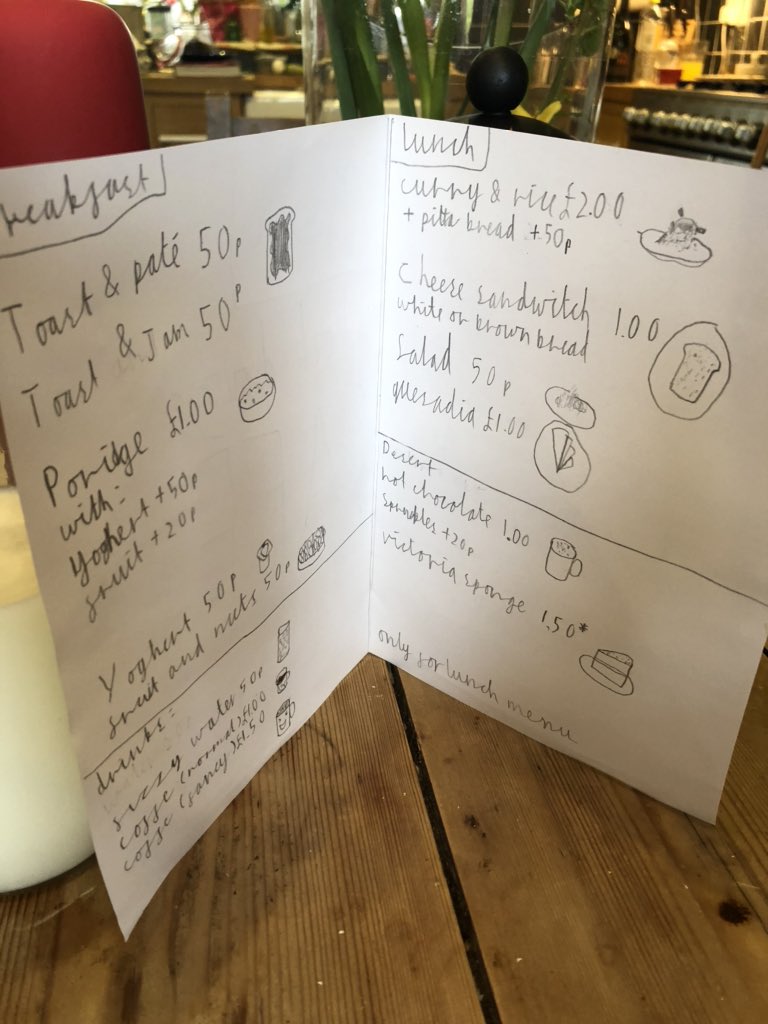 reakfast
Toast & paté 50p
Toast & Jam 50p
Porridge £1.00
with:
Yoghert +50p
fruit +20p
Yoghert 50p
fruit and nuts 50p
drinks:
fizzy water 50p
coffe (normal) £1.00
coffe (fancy) £1.50
Lunch
curry & rice £2.00
+ pitta bread +50p
Cheese sandwitch 1.00
white or brown bread
Salad 50p
quesadia £1.00
Desert
hot chocolate 1.00
Sprinkles +20p
victoria sponge 1.50*
only for lunch menu